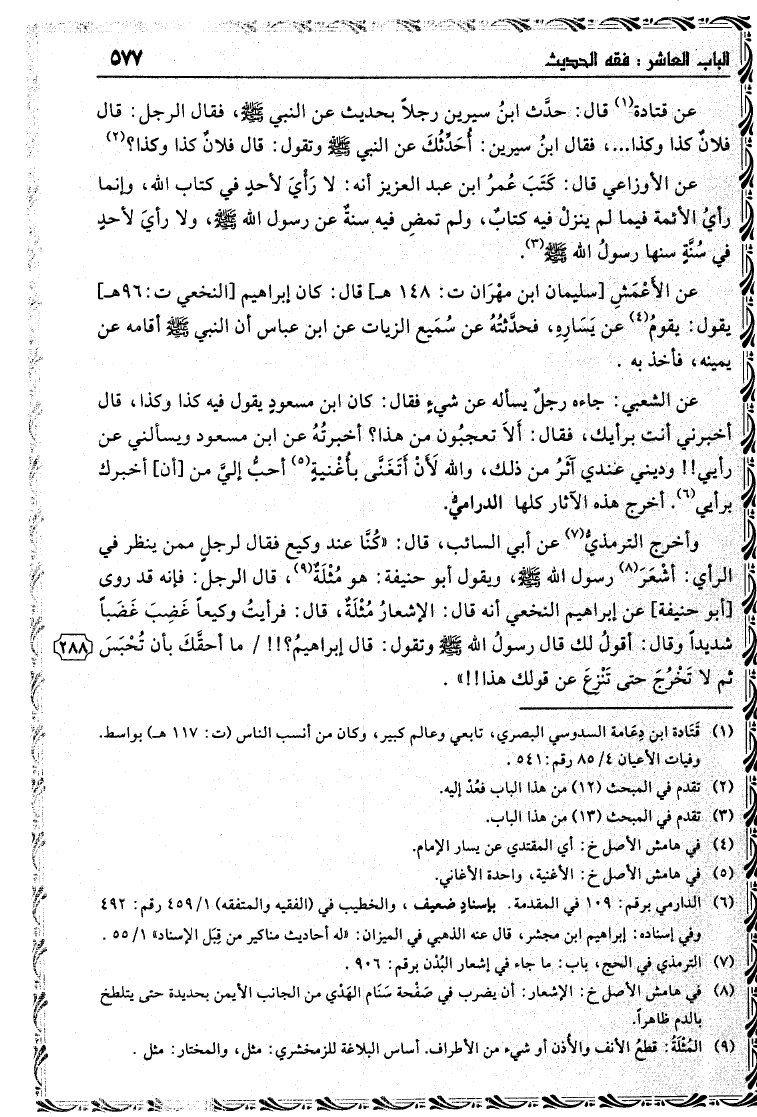 الباب العاشر : فقه الحديث ٥٧٧
عن قتادة(١) قال: حدَّث ابنُ سيرين رجلاً بحديث عن النبي ﷺ، فقال الرجل: قال
فلانٌ كذا وكذا...، فقال ابنُ سيرين: أُحَدِّثُكَ عن النبي ﷺ وتقول: قال فلانٌ كذا وكذا؟(٢)
عن الأوزاعي قال: كَتَبَ عُمرُ ابن عبد العزيز أنه: لا رَأْيَ لأحدٍ في كتاب الله، وإنما
رأيُ الأئمة فيما لم ينزلْ فيه كتابٌ، ولم تمضِ فيه سنةٌ عن رسول الله ﷺ، ولا رأيَ لأحدٍ
في سُنَّةٍ سنها رسولُ الله ﷺ(٣).
عن الأَعْمَشِ [سليمان ابن مهْرَان ت: ١٤٨ هـ] قال: كان إبراهيم [النخعي ت:٩٦هـ]
يقول: يقومُ(٤) عن يَسَارِهِ، فحدَّثتُهُ عن سُمَيع الزيات عن ابن عباس أن النبي ﷺ أقامه عن
يمينه، فأخذ به .
عن الشعبي: جاءه رجلٌ يسأله عن شيءٍ فقال: كان ابن مسعودٍ يقول فيه كذا وكذا، قال
أخبرني أنت برأيك، فقال: أَلاَ تعجبُون من هذا؟ أخبرتُهُ عن ابن مسعود ويسألني عن
رأيي!! وديني عندي آثَرُ من ذلك، والله لَأَنْ أَتَغَنَّى بأُغْنيةٍ(٥) أحبُّ إليَّ من [أن] أخبرك
برأيي(٦). أخرج هذه الآثار كلها الدراميُّ.
وأخرج الترمذيُّ(٧) عن أبي السائب، قال: «كُنَّا عند وكيع فقال لرجلٍ ممن ينظر في
الرأي: أشْعَرَ(٨) رسول الله ﷺ، ويقول أبو حنيفة: هو مُثْلَةٌ(٩)، قال الرجل: فإنه قد روى
[أبو حنيفة] عن إبراهيم النخعي أنه قال: الإشعارُ مُثْلَةٌ، قال: فرأيتُ وكيعاً غَضِبَ غَضَباً
شديداً وقال: أقولُ لك قال رسولُ الله ﷺ وتقول: قال إبراهيمُ؟!! / ما أحقَّكَ بأن تُحْبَسَ [٢٨٨]
ثم لا تَخْرُجَ حتى تَنْزِعَ عن قولك هذا!!» .
(١) قَتَادة ابن دِعَامة السدوسي البصري، تابعي وعالم كبير، وكان من أنسب الناس (ت: ١١٧ هـ) بواسط.
وفيات الأعيان ٤/ ٨٥ رقم: ٥٤١ .
(٢) تقدم في المبحث (١٢) من هذا الباب فعُدْ إليه.
(٣) تقدم في المبحث (١٣) من هذا الباب.
(٤) في هامش الأصل خ: أي المقتدي عن يسار الإمام.
(٥) في هامش الأصل خ: الأغنية، واحدة الأغاني.
(٦) الدارمي برقم: ١٠٩ في المقدمة. بإسنادٍ ضعيف ، والخطيب في (الفقيه والمتفقه) ١/ ٤٥٩ رقم: ٤٩٢
وفي إسناده: إبراهيم ابن مجشر، قال عنه الذهبي في الميزان: «له أحاديث مناكير من قِبَل الإسناد» ١/ ٥٥ .
(٧) الترمذي في الحج، باب: ما جاء في إشعار البُدْن برقم: ٩٠٦ .
(٨) في هامش الأصل خ: الإشعار: أن يضرب في صَفْحة سَنَام الهَدْي من الجانب الأيمن بحديدة حتى يتلطخ
بالدم ظاهراً.
(٩) المُثْلَةُ: قطعُ الأنف والأُذن أو شيء من الأطراف. أساس البلاغة للزمخشري: مثل، والمختار: مثل .